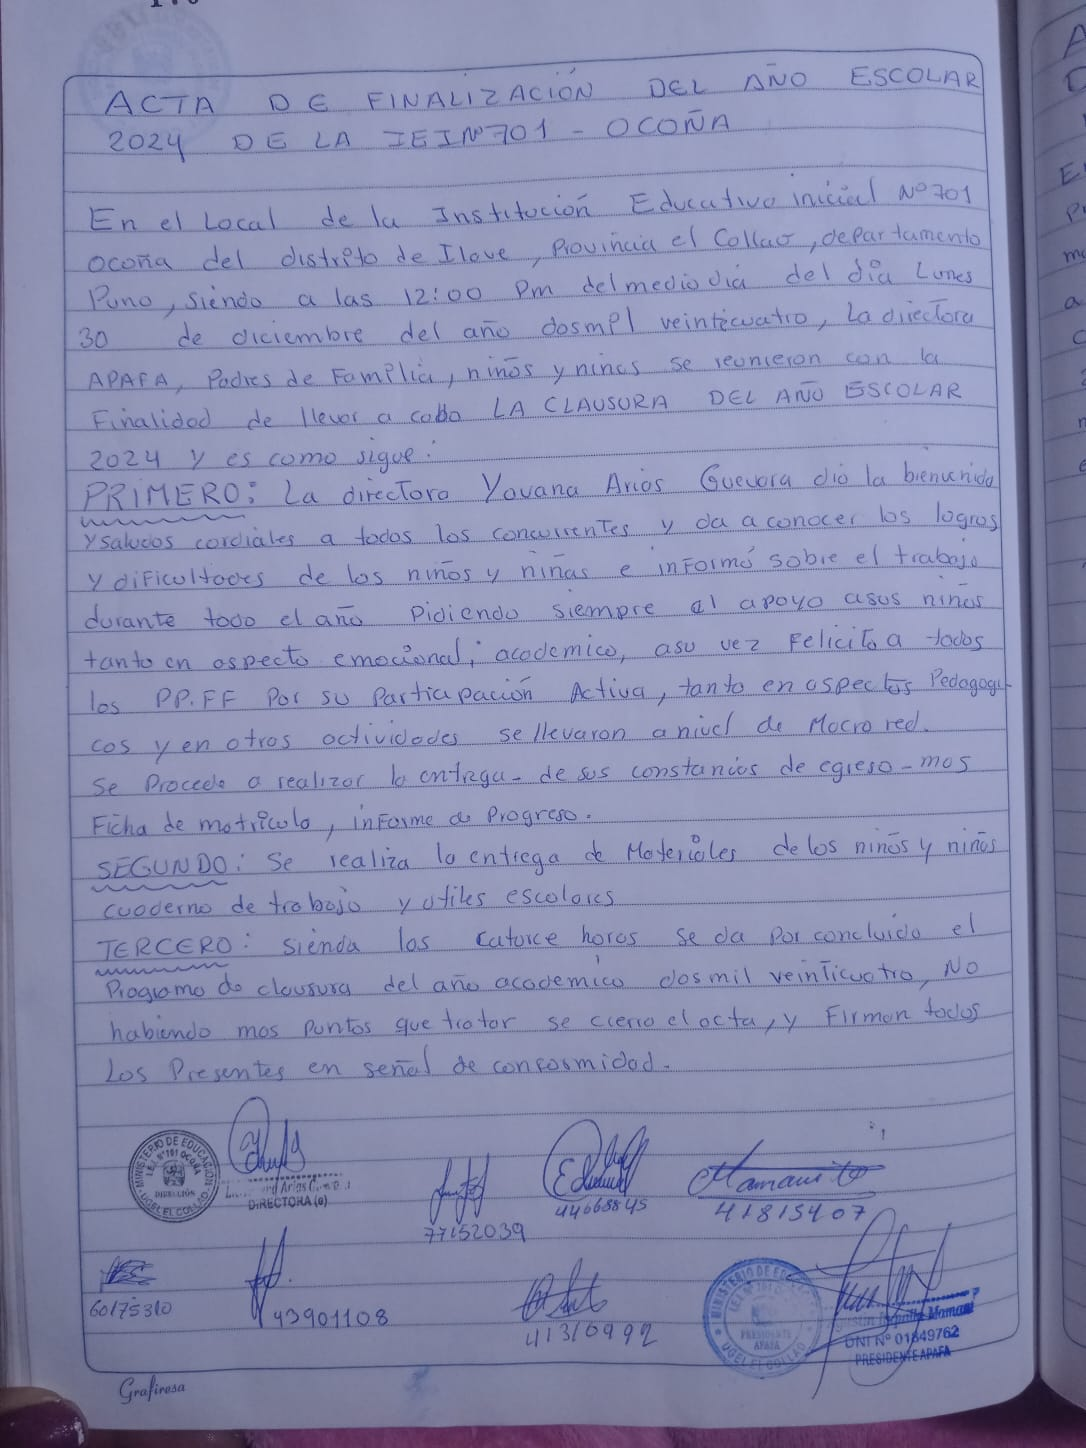 ACTA DE FINALIZACIÓN DEL AÑO ESCOLAR
2024 DE LA IEI Nº 701 - OCOÑA
En el Local de la Institución Educativo inicial Nº 701
Ocoña del distrito de Ilave, Provincia el Collao, departamento
Puno, siendo a las 12:00 pm del mediodia del dia Lunes
30 de diciembre del año dosmil veinticuatro, La directora
APAFA, Padres de Familia, niños y niñas se reunieron con la
Finalidad de llevar a cabo LA CLAUSURA DEL AÑO ESCOLAR
2024 y es como sigue:
PRIMERO: La directora Yovana Arias Guevara dió la bienvenida
y saludos cordiales a todos los concurrentes y da a conocer los logros
y dificultades de los niños y niñas e informó sobre el trabajo
durante todo el año Pidiendo siempre al apoyo asus niños
tanto en aspecto emocional, academico, asu vez Felicita a todos
los PP.FF Por su Participación Activa, tanto en aspectos Pedagogi-
cos y en otras actividades se llevaron a nivel de Macro red.
Se Procede a realizar la entrega de sus constancias de egreso - mas
Ficha de matricula, informe de Progreso.
SEGUNDO: Se realiza la entrega de Materiales de los niños y niñas
cuaderno de trabajo y utiles escolares
TERCERO: Sienda las catorce horas se da Por concluido el
Programa de clausura del año academico dos mil veinticuatro, No
habiendo mas puntos que tratar se cierra el acta, y Firman todos
Los Presentes en señal de conformidad.
MINISTERIO DE EDUCACIÓN
OCOÑA
DIRECCIÓN
UGEL EL COLLAO
DIRECTORA (e)
77152039
44668845
Mamani
41815407
60175310
43901108
41316992
MINISTERIO DE
PRESIDENTE
APAFA
UGEL EL COLLAO
Mamani
DNI Nº 01849762
PRESIDENTE APAFA
Grafirosa